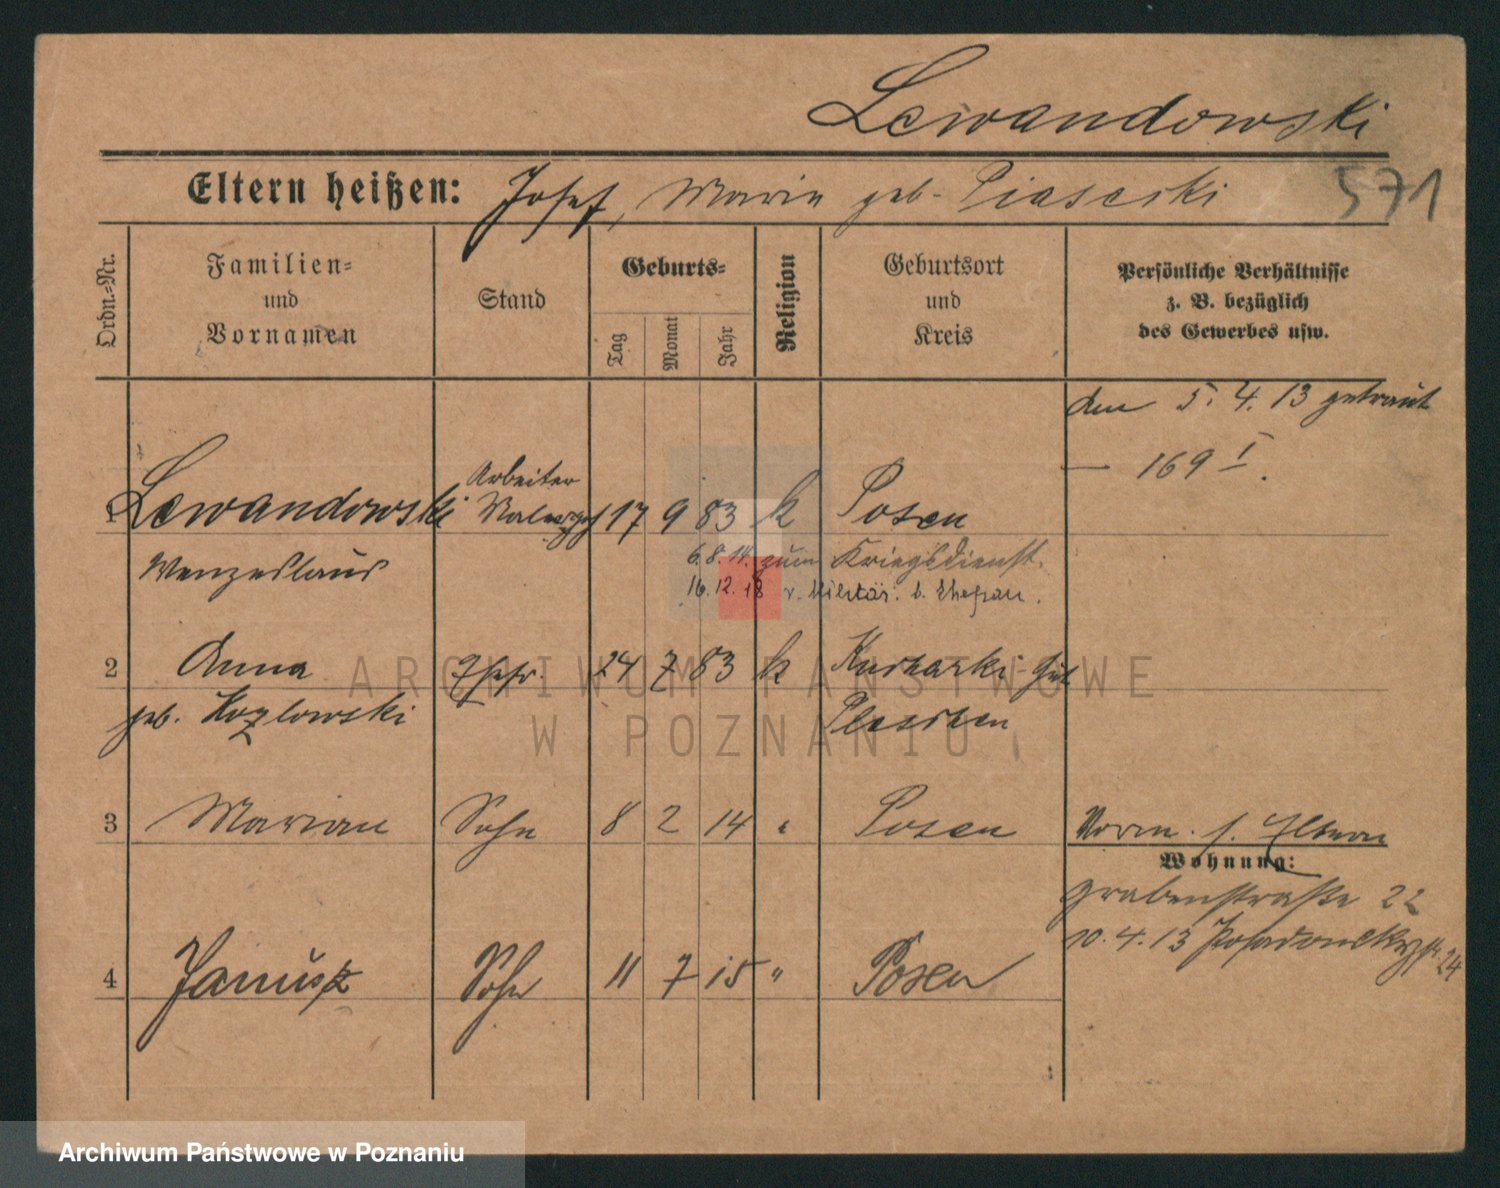 Lewandowski
Eltern heißen: Josef, Maria geb. Piasecki
571
Ordn.-Nr.
Familien-
und
Vornamen
Stand
Geburts-
Tag
Monat
Jahr
Religion
Geburtsort
und
Kreis
Persönliche Verhältnisse
z. B. bezüglich
des Gewerbes usw.
den 5. 4. 13 getraut
— 169 I.
Arbeiter
1 Lewandowski 17 9 83 k Posen
Wenzeslaus
6.8.14. zum Kriegsdienst.
16.12.18 v. Militär. b. Ehefrau.
2 Anna Ehefr. 24 7 83 k
geb. Kozlowski Pleschen
3 Marian Sohn 8 2 14 " Posen
Vorm. s. Eltern
Wohnung:
Grabenstraße 22
10.4.13 24
4 Janusz Sohn 11 7 15 " Posen
ARCHIWUM PAŃSTWOWE
W POZNANIU
Archiwum Państwowe w Poznaniu